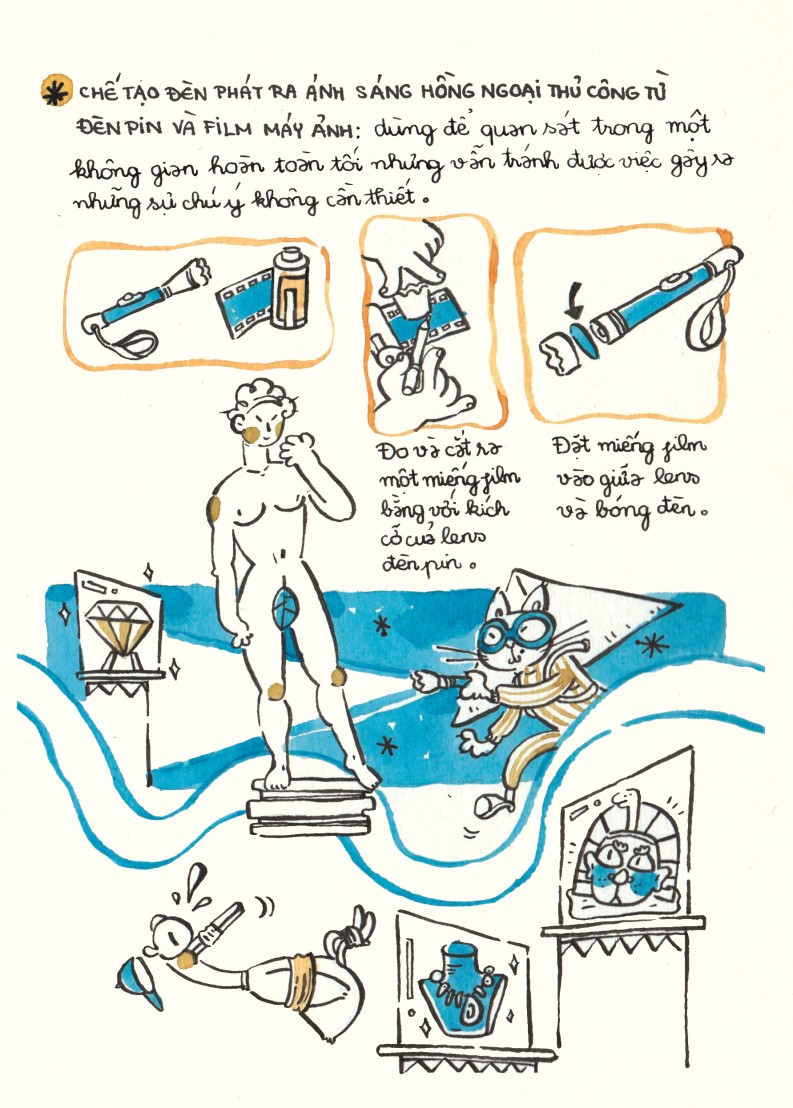 CHẾ TẠO ĐÈN PHÁT RA ÁNH SÁNG HỒNG NGOẠI THỦ CÔNG TỪ
ĐÈN PIN VÀ FILM MÁY ẢNH: dùng để quan sát trong một
không gian hoàn toàn tối nhưng vẫn tránh được việc gây ra
những sự chú ý không cần thiết.
Đo và cắt ra
một miếng film
bằng với kích
cỡ của lens
đèn pin.
Đặt miếng film
vào giữa lens
và bóng đèn.